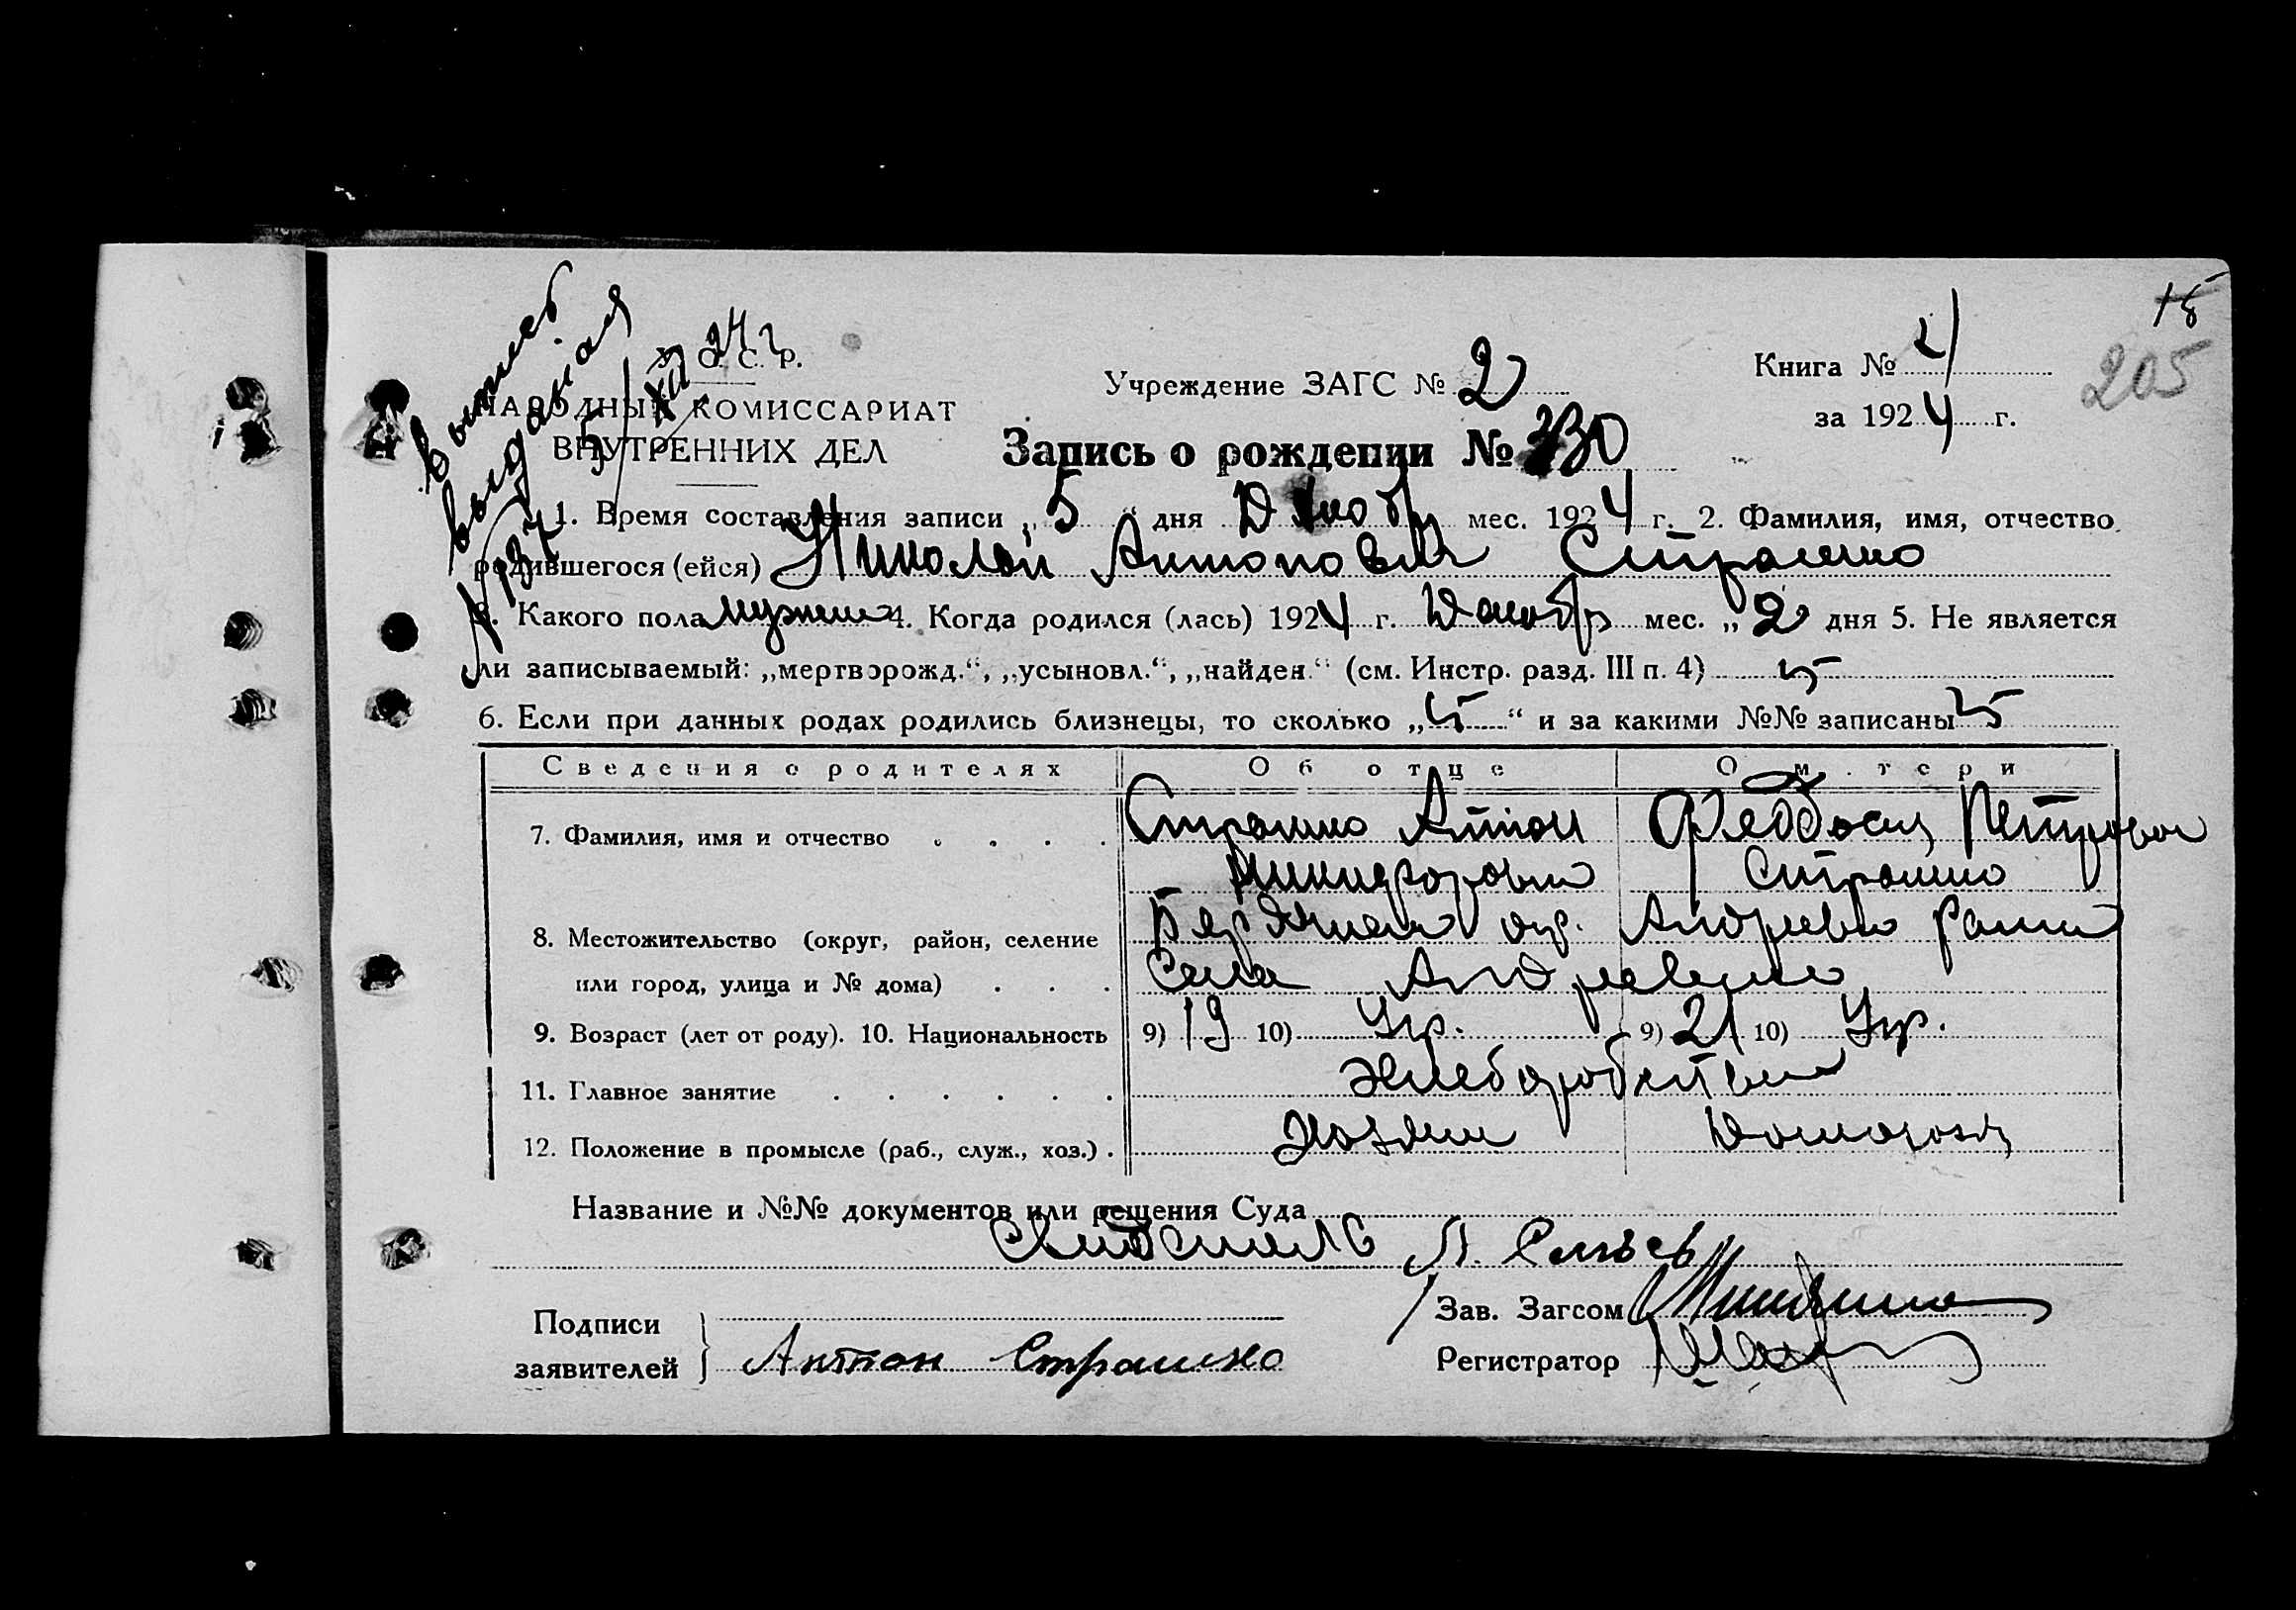 15
205
выпись
выданая
5/XII 24 г
№ 137
У. С. С. Р.
НАРОДНЫЙ КОМИССАРИАТ
ВНУТРЕННИХ ДЕЛ
Учреждение ЗАГС № 2
Книга № 4
за 1924 г.
Запись о рождении № 330
1. Время составления записи „5“ дня Декабр мес. 1924 г. 2. Фамилия, имя, отчество
родившегося (ейся) Николай Антонович Страшко
3. Какого пола мужск 4. Когда родился (лась) 1924 г. Декабр мес. „2 дня 5. Не является
ли записываемый: „мертворожд.“, „усыновл.“, „найден.“ (см. Инстр. разд. III п. 4)
6. Если при данных родах родились близнецы, то сколько „ “ и за какими №№ записаны
Сведения о родителях Об отце О матери
7. Фамилия, имя и отчество Страшко Антон Феодосия Петровна
Никифорович Страшко
8. Местожительство (округ, район, селение Бердянск окр. Андреевск
или город, улица и № дома) Село Андреевка
9. Возраст (лет от роду). 10. Национальность 9) 19 10) Укр. 9) 21 10) Укр.
11. Главное занятие Хлеборобство
12. Положение в промысле (раб., служ., хоз.) Хозяин Домохоз
Название и №№ документов или решения Суда
Подписи
заявителей Антон Страшко
Зав. Загсом
Регистратор